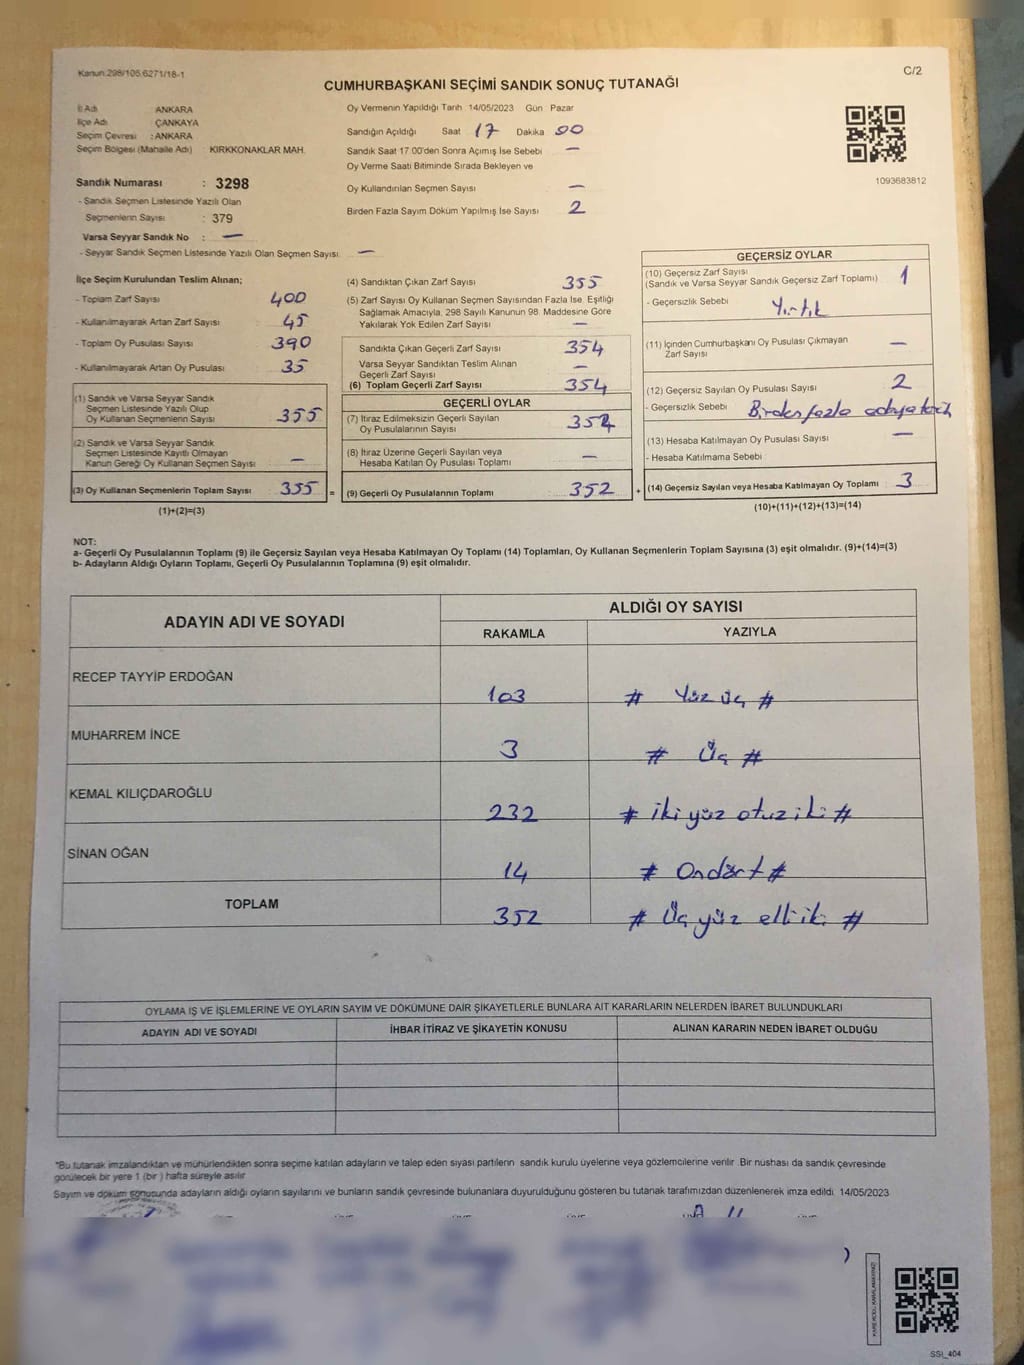 Kanun:298/106,6271/18-1
C/2
CUMHURBAŞKANI SEÇİMİ SANDIK SONUÇ TUTANAĞI
İl Adı ANKARA
İlçe Adı ÇANKAYA
Seçim Çevresi : ANKARA
Seçim Bölgesi (Mahalle Adı) : KIRKKONAKLAR MAH.
Sandık Numarası : 3298
- Sandık Seçmen Listesinde Yazılı Olan
Seçmenlerin Sayısı : 379
Varsa Seyyar Sandık No : —
- Seyyar Sandık Seçmen Listesinde Yazılı Olan Seçmen Sayısı: —
Oy Vermenin Yapıldığı Tarih 14/05/2023 Gün Pazar
Sandığın Açıldığı Saat 17 Dakika 00
Sandık Saat 17:00'den Sonra Açımış İse Sebebi —
Oy Verme Saati Bitiminde Sırada Bekleyen ve
Oy Kullandırılan Seçmen Sayısı —
Birden Fazla Sayım Döküm Yapılmış İse Sayısı 2
1093683812
İlçe Seçim Kurulundan Teslim Alınan;
- Toplam Zarf Sayısı 400
- Kullanılmayarak Artan Zarf Sayısı 45
- Toplam Oy Pusulası Sayısı 390
- Kullanılmayarak Artan Oy Pusulası 35
(1) Sandık ve Varsa Seyyar Sandık
Seçmen Listesinde Yazılı Olup
Oy Kullanan Seçmenlerin Sayısı 355
(2) Sandık ve Varsa Seyyar Sandık
Seçmen Listesinde Kayıtlı Olmayan
Kanun Gereği Oy Kullanan Seçmen Sayısı —
(3) Oy Kullanan Seçmenlerin Toplam Sayısı 355 =
(1)+(2)=(3)
(4) Sandıktan Çıkan Zarf Sayısı 355
(5) Zarf Sayısı Oy Kullanan Seçmen Sayısından Fazla İse, Eşitliği
Sağlamak Amacıyla, 298 Sayılı Kanunun 98. Maddesine Göre
Yakılarak Yok Edilen Zarf Sayısı —
Sandıkta Çıkan Geçerli Zarf Sayısı 354
Varsa Seyyar Sandıktan Teslim Alınan
Geçerli Zarf Sayısı —
(6) Toplam Geçerli Zarf Sayısı 354
GEÇERLİ OYLAR
(7) İtiraz Edilmeksizin Geçerli Sayılan
Oy Pusulalarının Sayısı 352
(8) İtiraz Üzerine Geçerli Sayılan veya
Hesaba Katılan Oy Pusulası Toplamı —
(9) Geçerli Oy Pusulalarının Toplamı 352 +
GEÇERSİZ OYLAR
(10) Geçersiz Zarf Sayısı
(Sandık ve Varsa Seyyar Sandık Geçersiz Zarf Toplamı) 1
- Geçersizlik Sebebi Yırtık
(11) İçinden Cumhurbaşkanı Oy Pusulası Çıkmayan
Zarf Sayısı —
(12) Geçersiz Sayılan Oy Pusulası Sayısı 2
- Geçersizlik Sebebi Birden fazla adaya tercih
(13) Hesaba Katılmayan Oy Pusulası Sayısı —
- Hesaba Katılmama Sebebi
(14) Geçersiz Sayılan veya Hesaba Katılmayan Oy Toplamı 3
(10)+(11)+(12)+(13)=(14)
NOT:
a- Geçerli Oy Pusulalarının Toplamı (9) ile Geçersiz Sayılan veya Hesaba Katılmayan Oy Toplamı (14) Toplamları, Oy Kullanan Seçmenlerin Toplam Sayısına (3) eşit olmalıdır. (9)+(14)=(3)
b- Adayların Aldığı Oyların Toplamı, Geçerli Oy Pusulalarının Toplamına (9) eşit olmalıdır.
ADAYIN ADI VE SOYADI ALDIĞI OY SAYISI
RAKAMLA YAZIYLA
RECEP TAYYİP ERDOĞAN 103 # Yüz üç #
MUHARREM İNCE 3 # Üç #
KEMAL KILIÇDAROĞLU 232 # iki yüz otuz iki #
SİNAN OĞAN 14 # Ondört #
TOPLAM 352 # Üç yüz elli iki #
OYLAMA İŞ VE İŞLEMLERİNE VE OYLARIN SAYIM VE DÖKÜMÜNE DAİR ŞİKAYETLERLE BUNLARA AİT KARARLARIN NELERDEN İBARET BULUNDUKLARI
ADAYIN ADI VE SOYADI İHBAR İTİRAZ VE ŞİKAYETİN KONUSU ALINAN KARARIN NEDEN İBARET OLDUĞU
*Bu tutanak imzalandıktan ve mühürlendikten sonra seçime katılan adayların ve talep eden siyasi partilerin sandık kurulu üyelerine veya gözlemcilerine verilir. Bir nüshası da sandık çevresinde
görülecek bir yere 1 (bir) hafta süreyle asılır
Sayım ve döküm sonucunda adayların aldığı oyların sayılarını ve bunların sandık çevresinde bulunanlara duyurulduğunu gösteren bu tutanak tarafımızdan düzenlenerek imza edildi. 14/05/2023
SSI_404